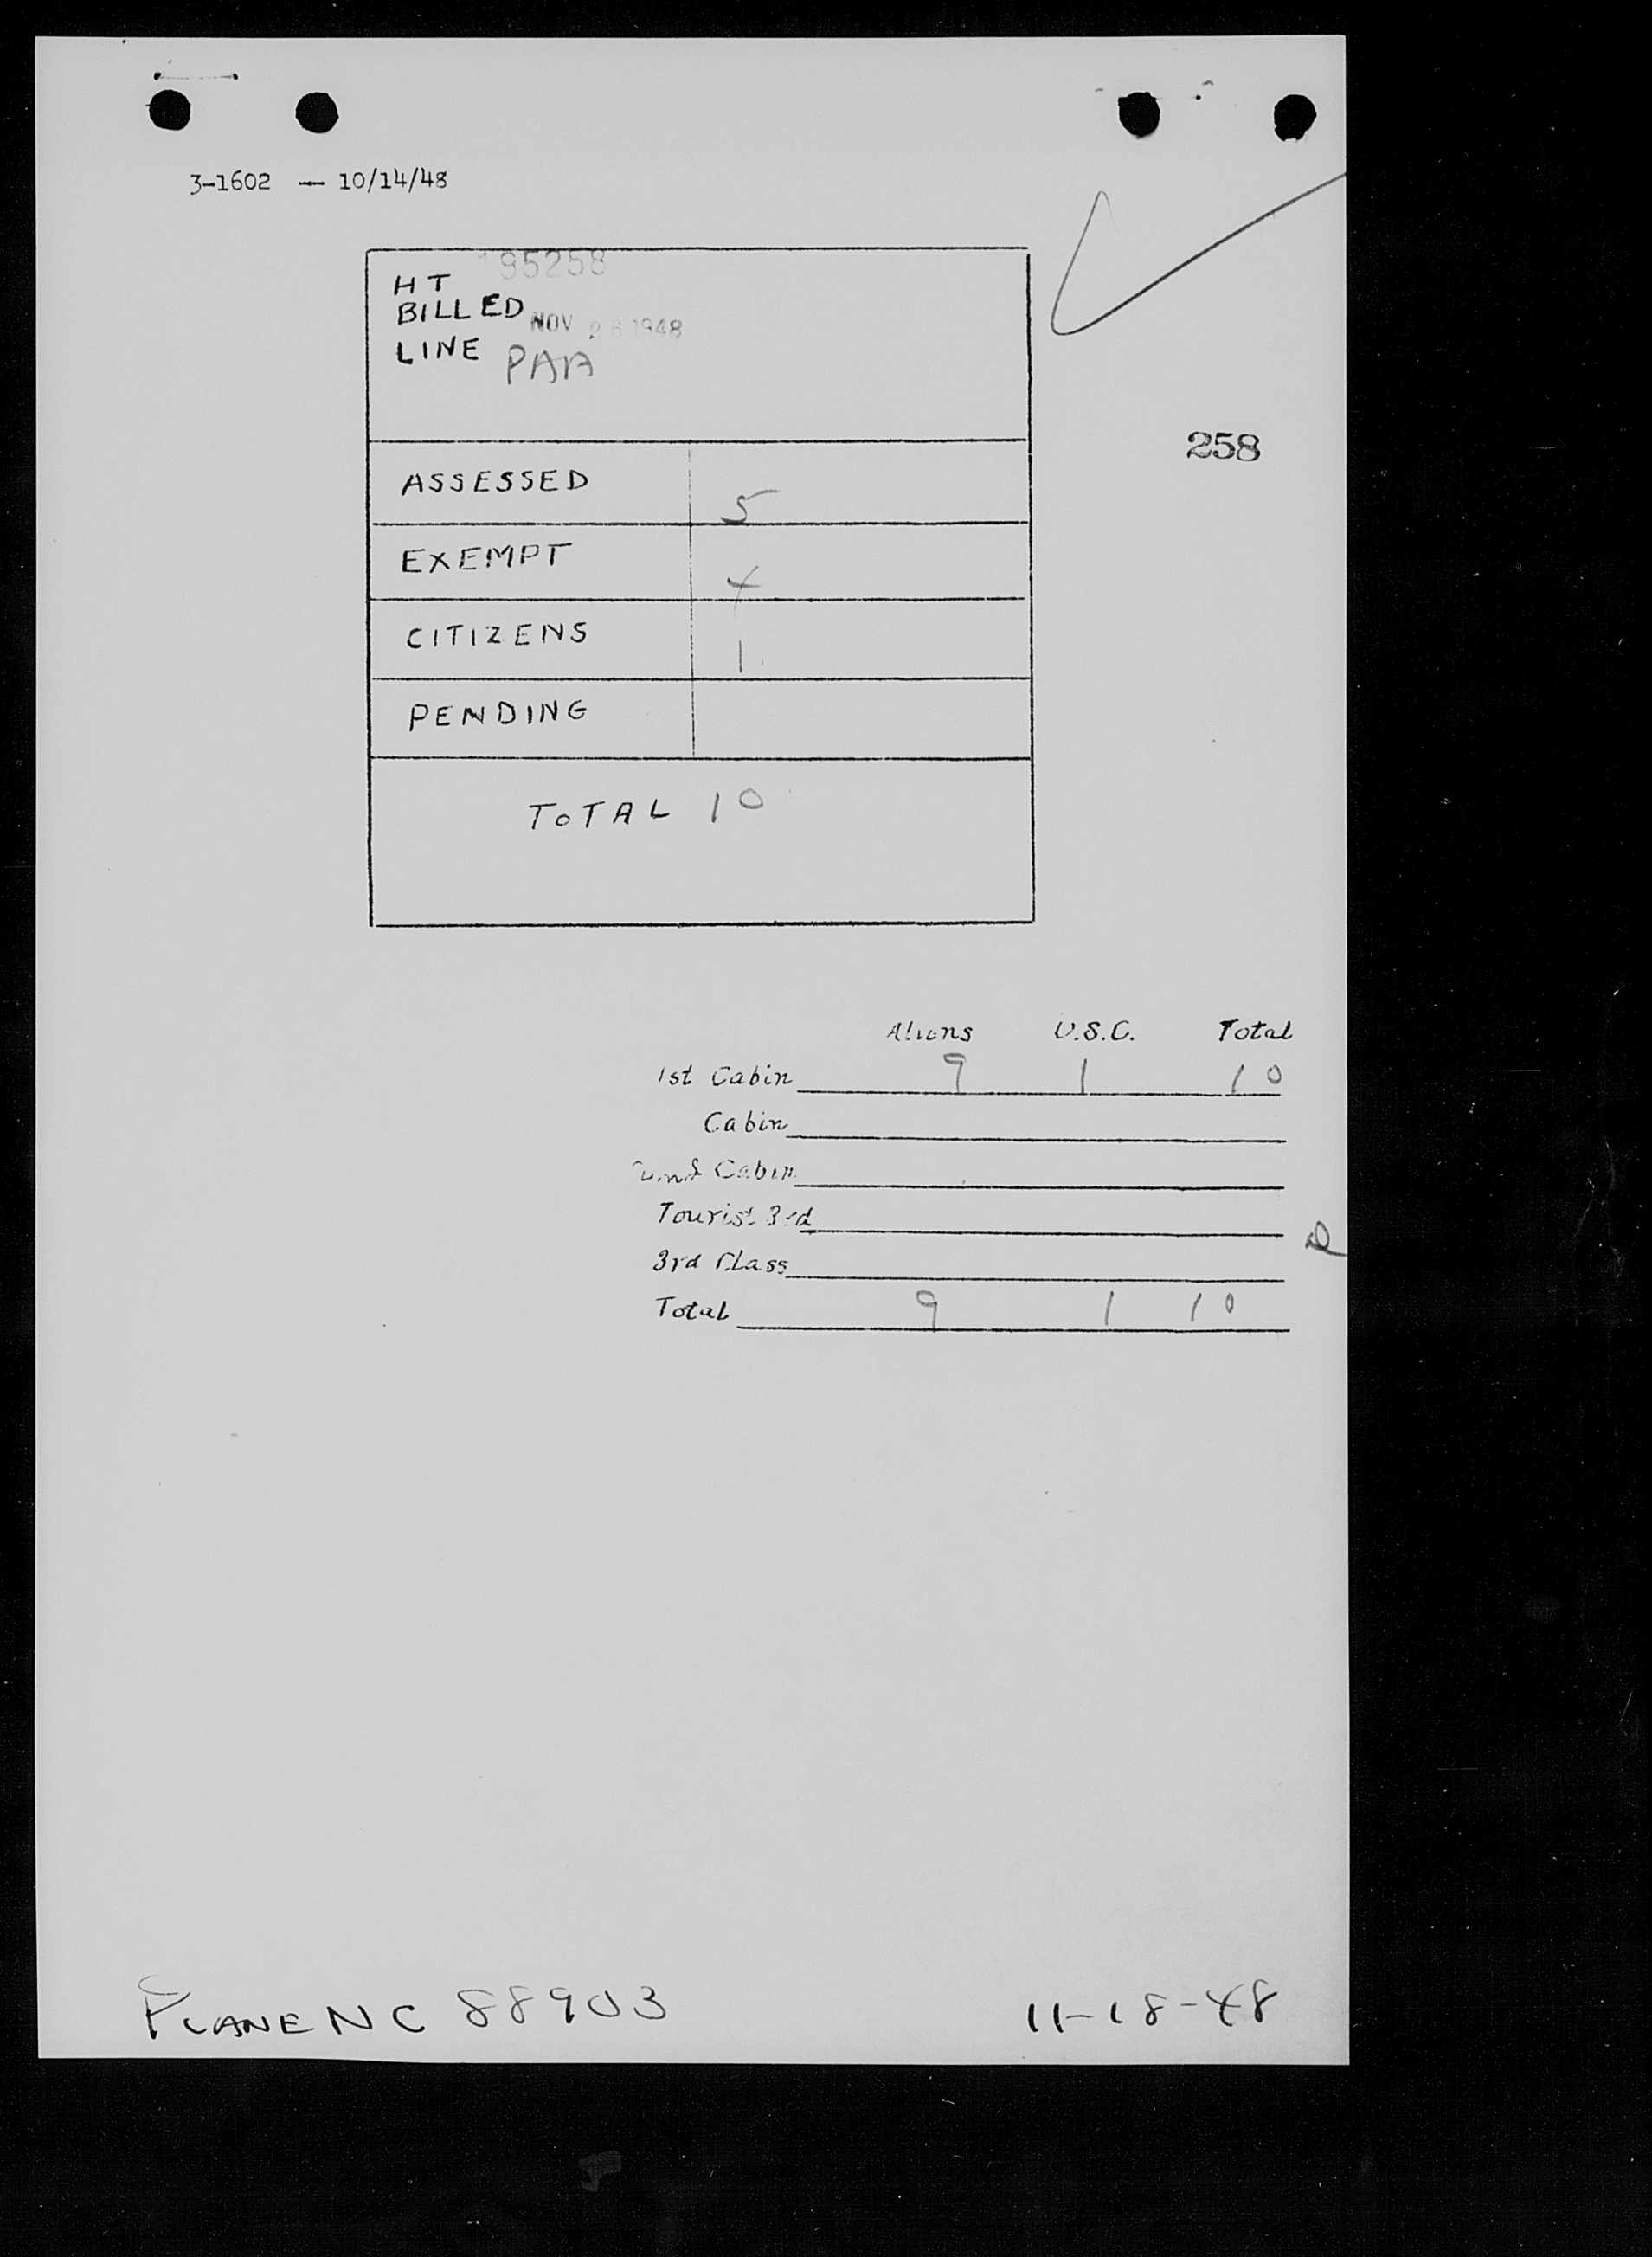 3-1602 — 10/14/48
195258
HT
BILLED NOV 26 1948
LINE PAA
258
ASSESSED 5
EXEMPT 4
CITIZENS 1
PENDING
TOTAL 10
Aliens U.S.C. Total
1st Cabin 9 1 10
Cabin
Cabin
Tourist 3rd
3rd Class
Total 9 1 10
PLANE NC 88903 11-18-48